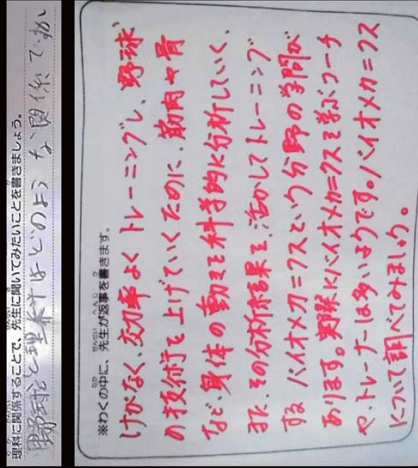 理科に関係することで、先生に聞いてみたいことを書きましょう。
野球と理科はどのような関係ですか
※わくの中に、先生が返事を書きます。
けがなく、効率よくトレーニングし、野球
の技術を上げていくために、筋肉や骨
など、身体の動きを科学的に分析していく、
また、その分析結果を、活かしてトレーニング
する バイオメカニクスという分野の学問が
あります。実際にバイオメカニクスを学ぶコーチ
や、トレーナーは多いようです。バイオメカニクス
について調べてみましょう。